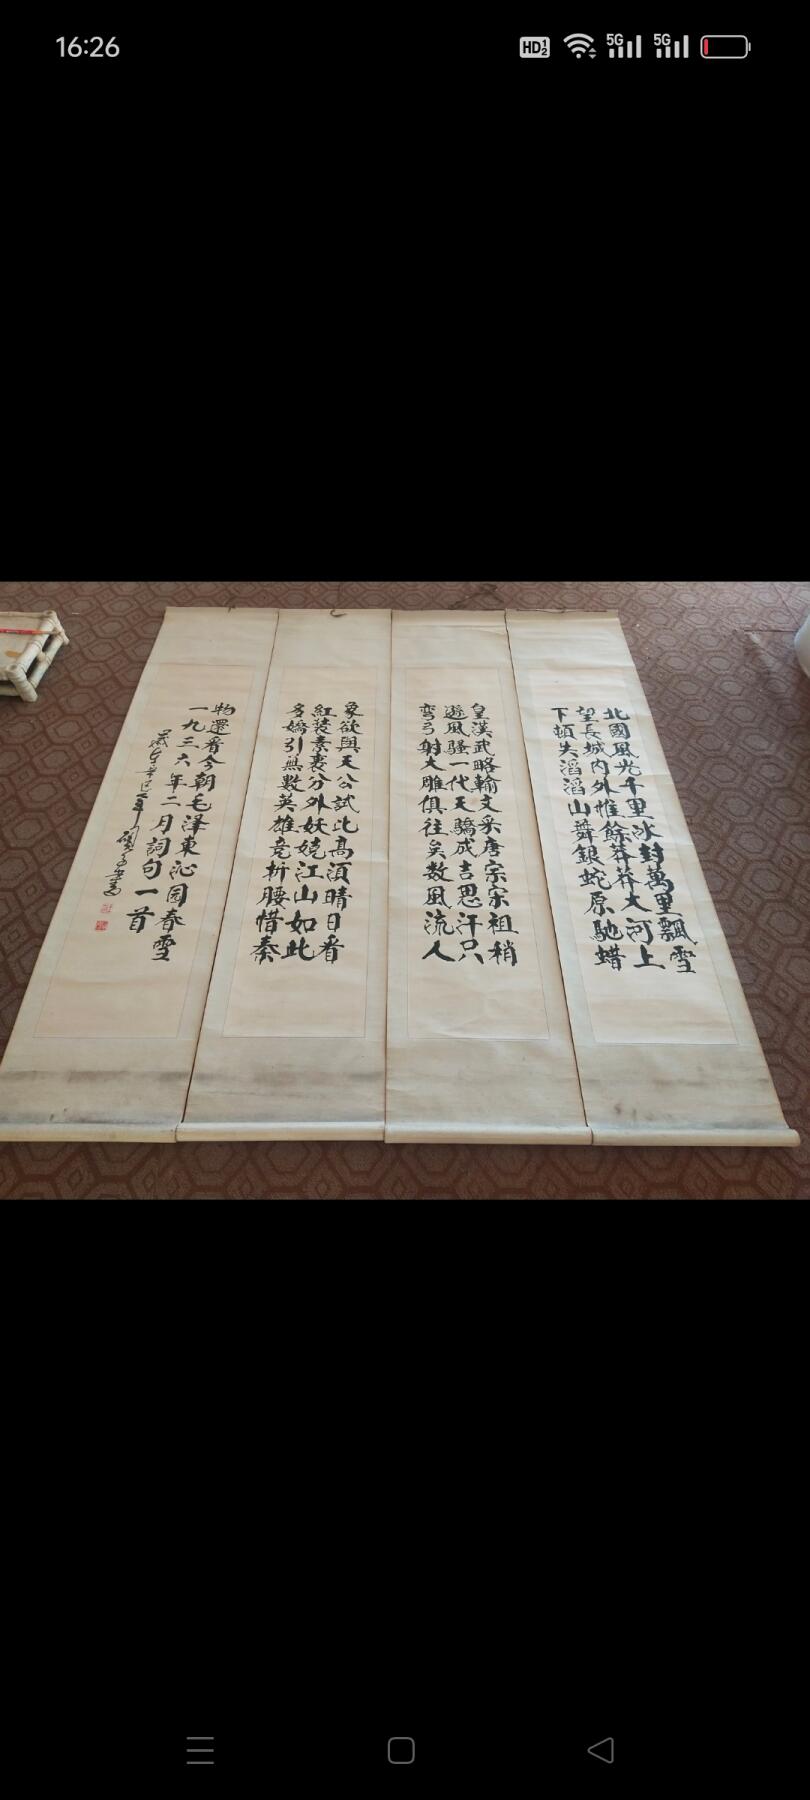 16:26
HD 1 2
5G
5G
北國風光千里冰封萬里飄雪
望長城内外惟餘莽莽大河上
下頓失滔滔山舞銀蛇原馳蜡
皇漢武略輸文采唐宗宋祖稍
遜風騷一代天驕成吉思汗只
彎弓射大雕俱往矣数風流人
象欲與天公試比高須晴日看
紅裝素裹分外妖嬈江山如此
多嬌引無數英雄竞折腰惜秦
物還看今朝毛泽東沁园春雪
一九三六年二月詞句一首